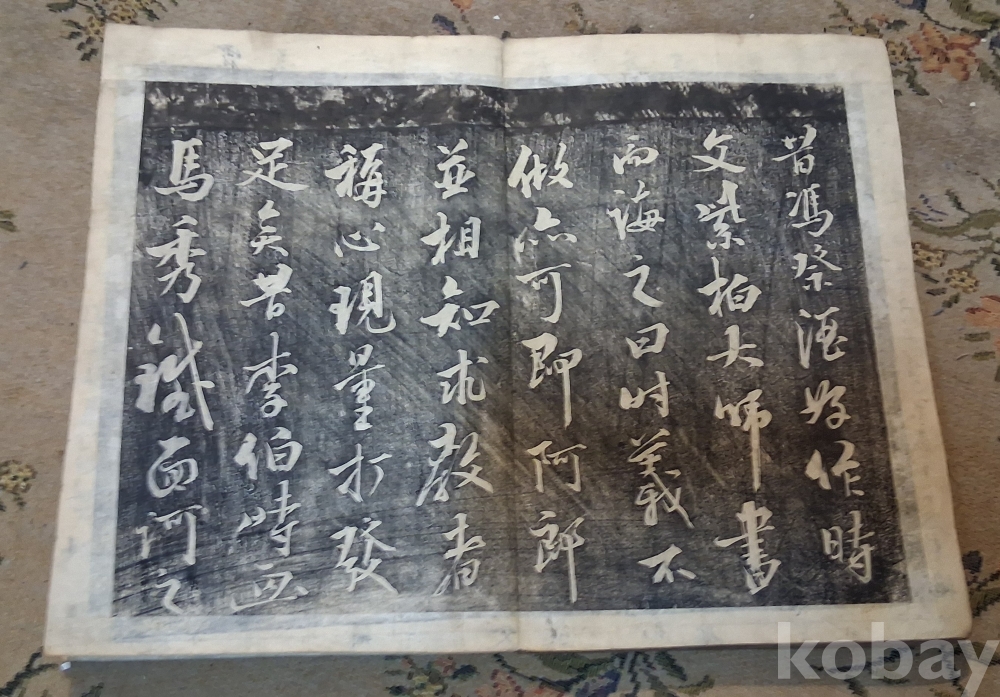 昔馮祭酒好作時
文紫柏大師書
而誨之曰時義不
做亦可即阿郎
並相知求教者
稱心現量打發
足矣昔李伯時画
馬秀鐵面訶之
kobay